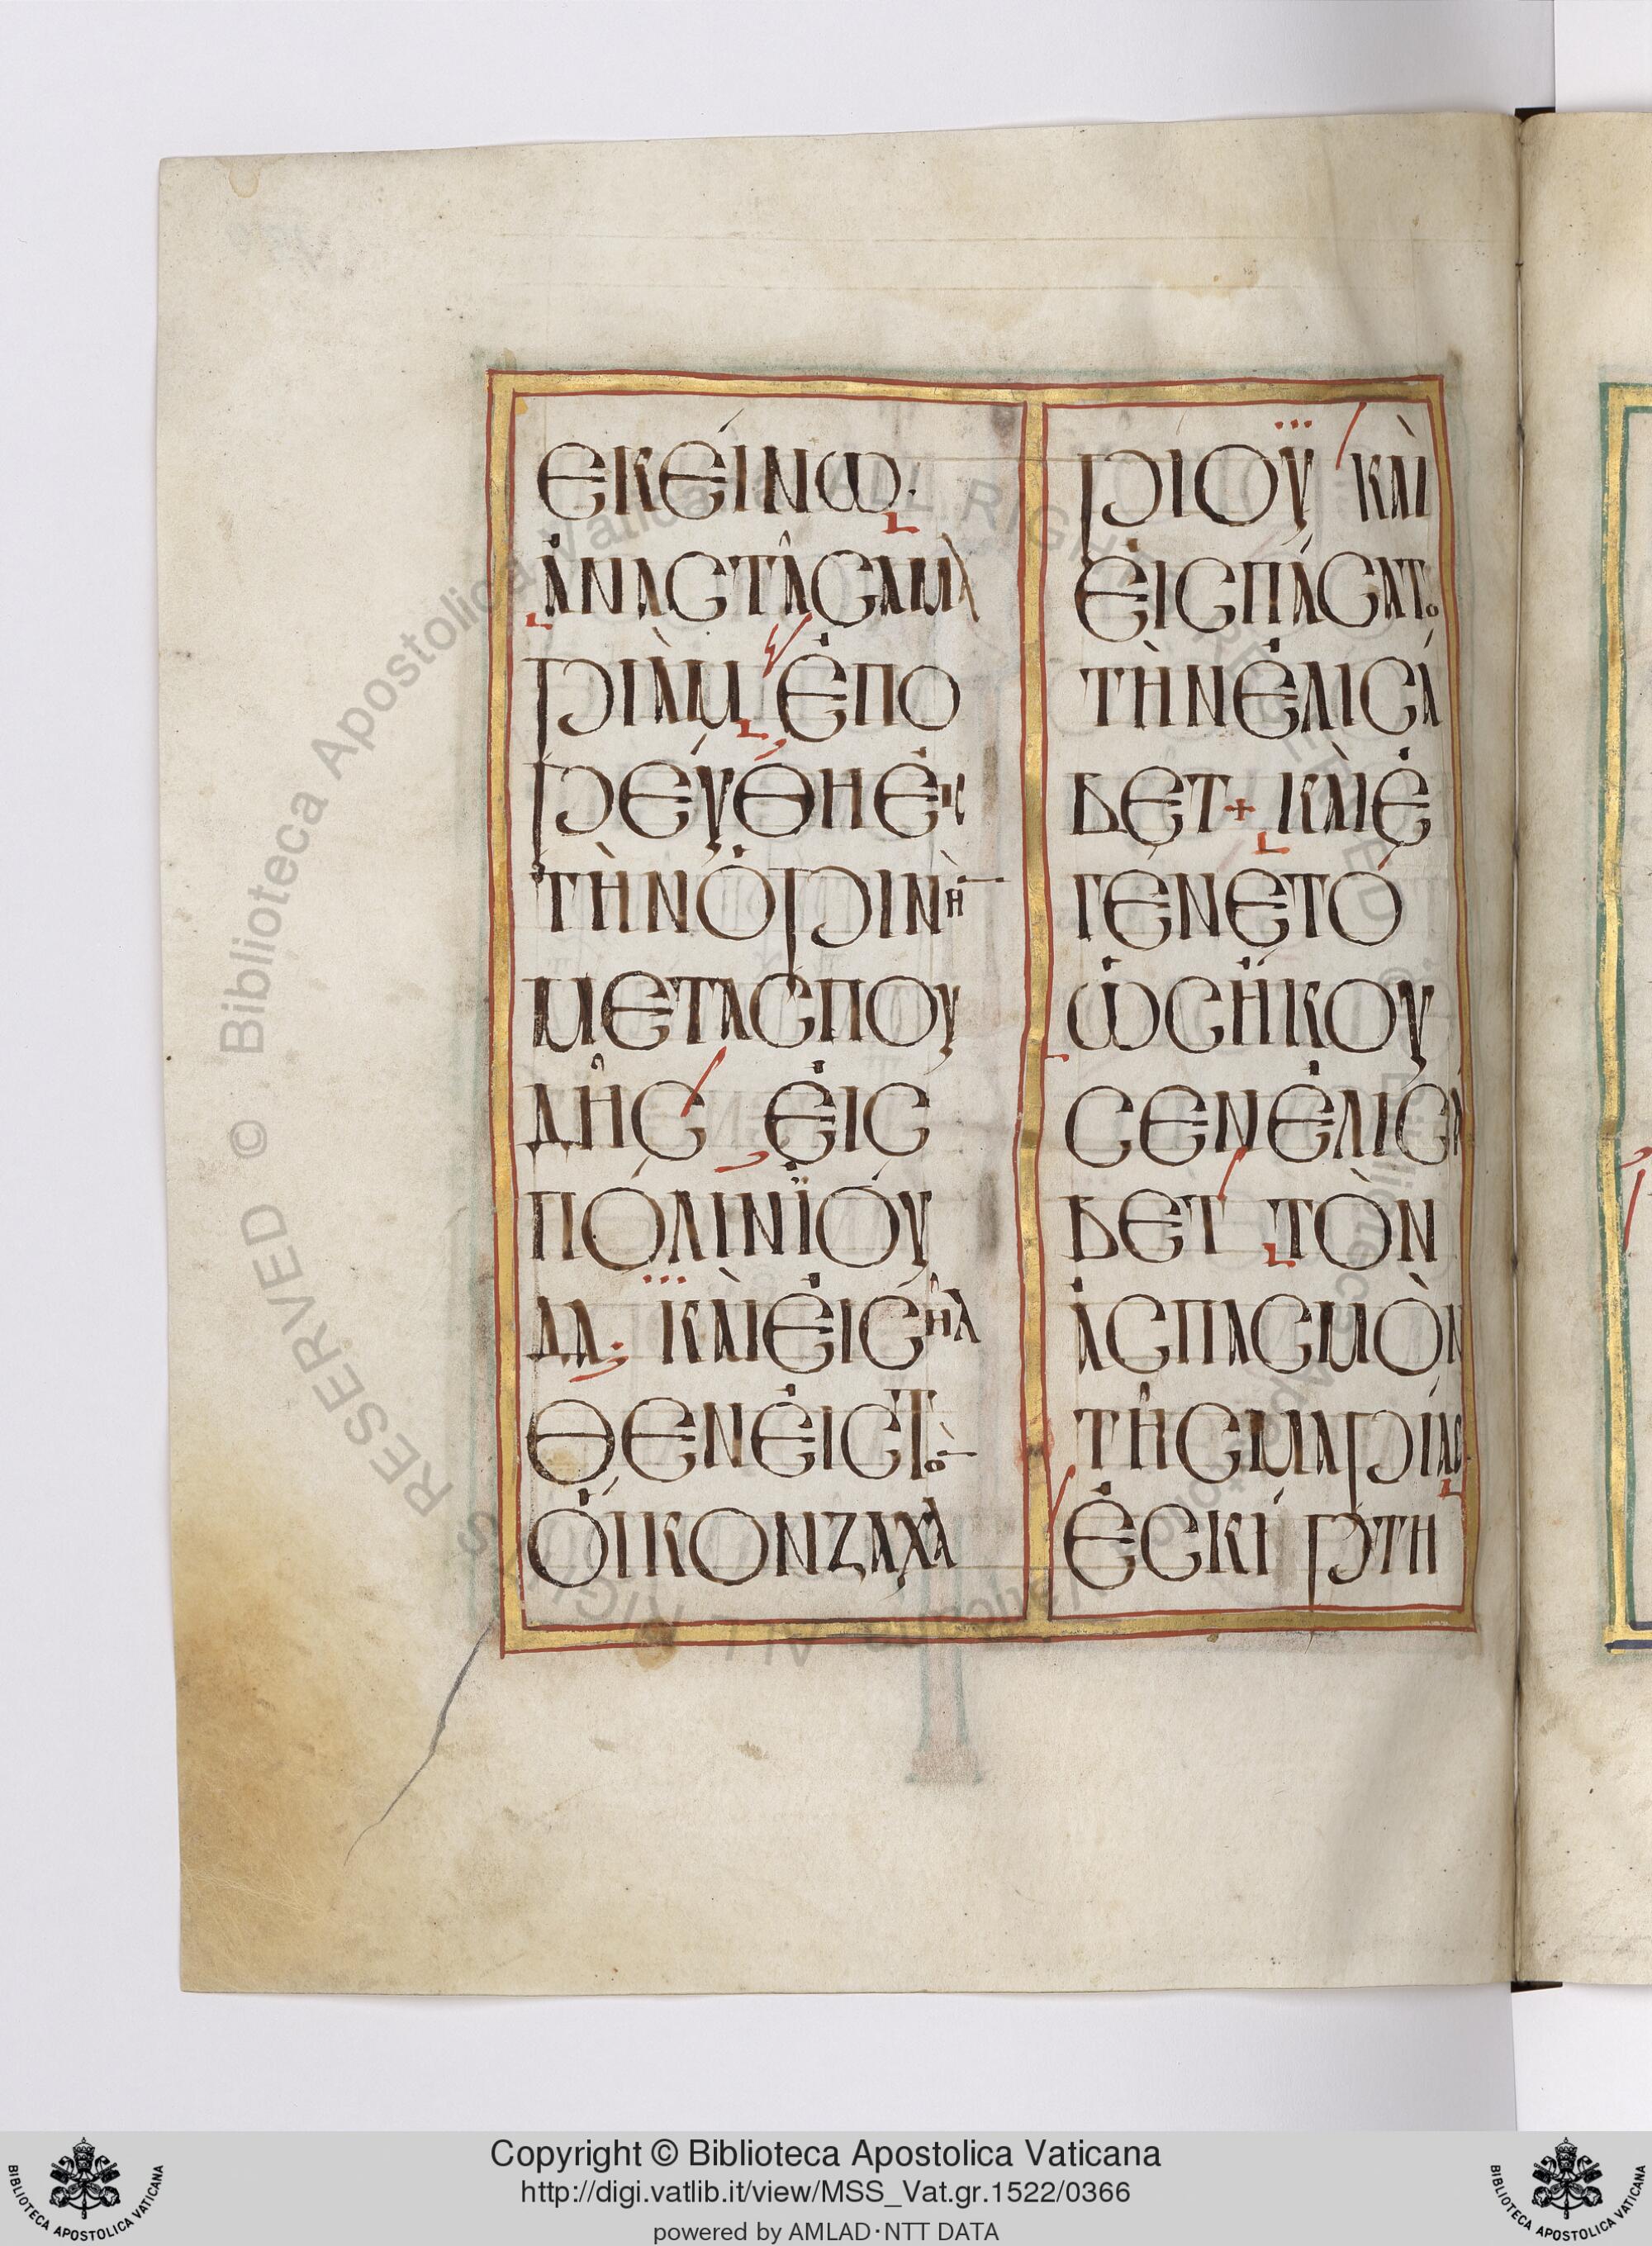 εκείνω.
ἀναστᾶσαμα
ριὰμ ἐπο
ρεύθηἐις
τὴνὀρινὴ
μετασπου
δῆς ἐις
πόλινϊού
δα· κὰιἐισῆλ
θενἐιςτὸ
ὀίκονζαχα
ρίου κὰι
ἐισπάσατο
τὴνἐλισά
βετ+ κὰιἐ
γένετό
ὡσἤκου
σενἐλισά
βετ τὸν
ἀσπασμὸν
τῆσμαρίας
ἐσκίρτη
© Biblioteca Apostolica Vaticana ALL RIGHTS RESERVED © Biblioteca Apostolica Vaticana ALL RIGHTS RESERVED
Copyright © Biblioteca Apostolica Vaticana
http://digi.vatlib.it/view/MSS_Vat.gr.1522/0366
powered by AMLAD·NTT DATA
BIBLIOTECA APOSTOLICA VATICANA
BIBLIOTECA APOSTOLICA VATICANA